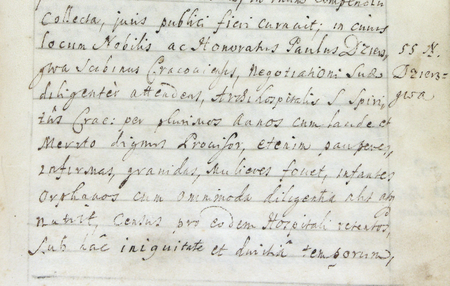 Collecta, juris publici fieri curavit; in cuius
locum Nobilis ac Honoratus Paulus Dzier-
gwa Scabinus Cracoviensis, Negotiationi Suæ
diligenter attendens, Archihospitalis S Spiri-
tûs Crac: per plurimos Annos cum laude et
Merito dignus Provisor, etenim pauperes,
infirmas, gravidas, Mulieres fovet, infantes
Orphanos cum omnimoda diligentia
nutrit, Census pro eodem Hospitali retentos,
Sub hac iniquitate et duritia temporum,
55 N.
Dzierz-
gwa